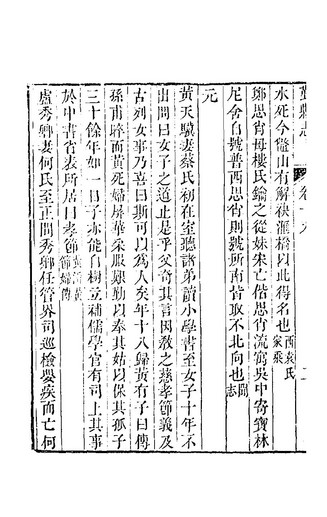 水死今盤山有解袂滙橋以此得名也西袁氏家乘
鄭思肖母樓氏鑰之從妹朱亡偕思肖流寓吳中寄寶林
尼舍自號普西思肖則號所南皆取不北向也聞志
元
黃天驥妻蔡氏初在室聽諸弟讀小學書至女子十年不
出問曰女子之道止是乎父奇其言因敎之慈孝節義及
古列女事乃喜曰斯可以為人矣年十八歸黃有子曰傳
孫甫晬而黃死婦屏華采服艱勤以奉其姑以保其孤子
三十餘年如一日子亦能自樹立補儒學官有司上其事
於中書省表所居曰孝節節婦傳
盧秀卿妻何氏至正間秀卿任管界司巡檢嬰疾而亡何